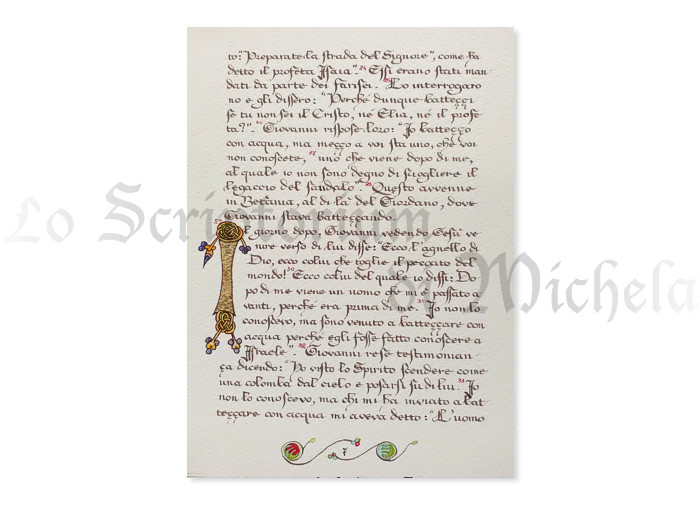 to: "Preparate la strada del Signore", come ha
detto il profeta Isaia". 24 Essi erano stati man
dati da parte dei farisei. 25 Lo interrogaro
no e gli dissero: "Perché dunque battezzi
se tu non sei il Cristo, né Elia, né il profe
ta?". 26 Giovanni rispose loro: "Io battezzo
con acqua, ma mezzo a voi sta uno, che voi
non conoscete, 27 uno che viene dopo di me,
al quale io non sono degno di sciogliere il
legaccio del sandalo". 28 Questo avvenne
in Betania, al di là del Giordano, dove
Giovanni stava battezzando.
29 Il giorno dopo, Giovanni vedendo Gesù ve
nire verso di lui disse: "Ecco l'agnello di
Dio, ecco colui che toglie il peccato del
mondo! 30 Ecco colui del quale io dissi: Do
po di me viene un uomo che mi è passato a
vanti, perché era prima di me. 31 Io non lo
conoscevo, ma sono venuto a battezzare con
acqua perché egli fosse fatto conoscere a
Israele". 32 Giovanni rese testimonian
za dicendo: "Ho visto lo Spirito scendere come
una colomba dal cielo e posarsi su di lui. 33 Io
non lo conoscevo, ma chi mi ha inviato a bat
tezzare con acqua mi aveva detto: "L'uomo
7
Lo Scriptorium
di Michela